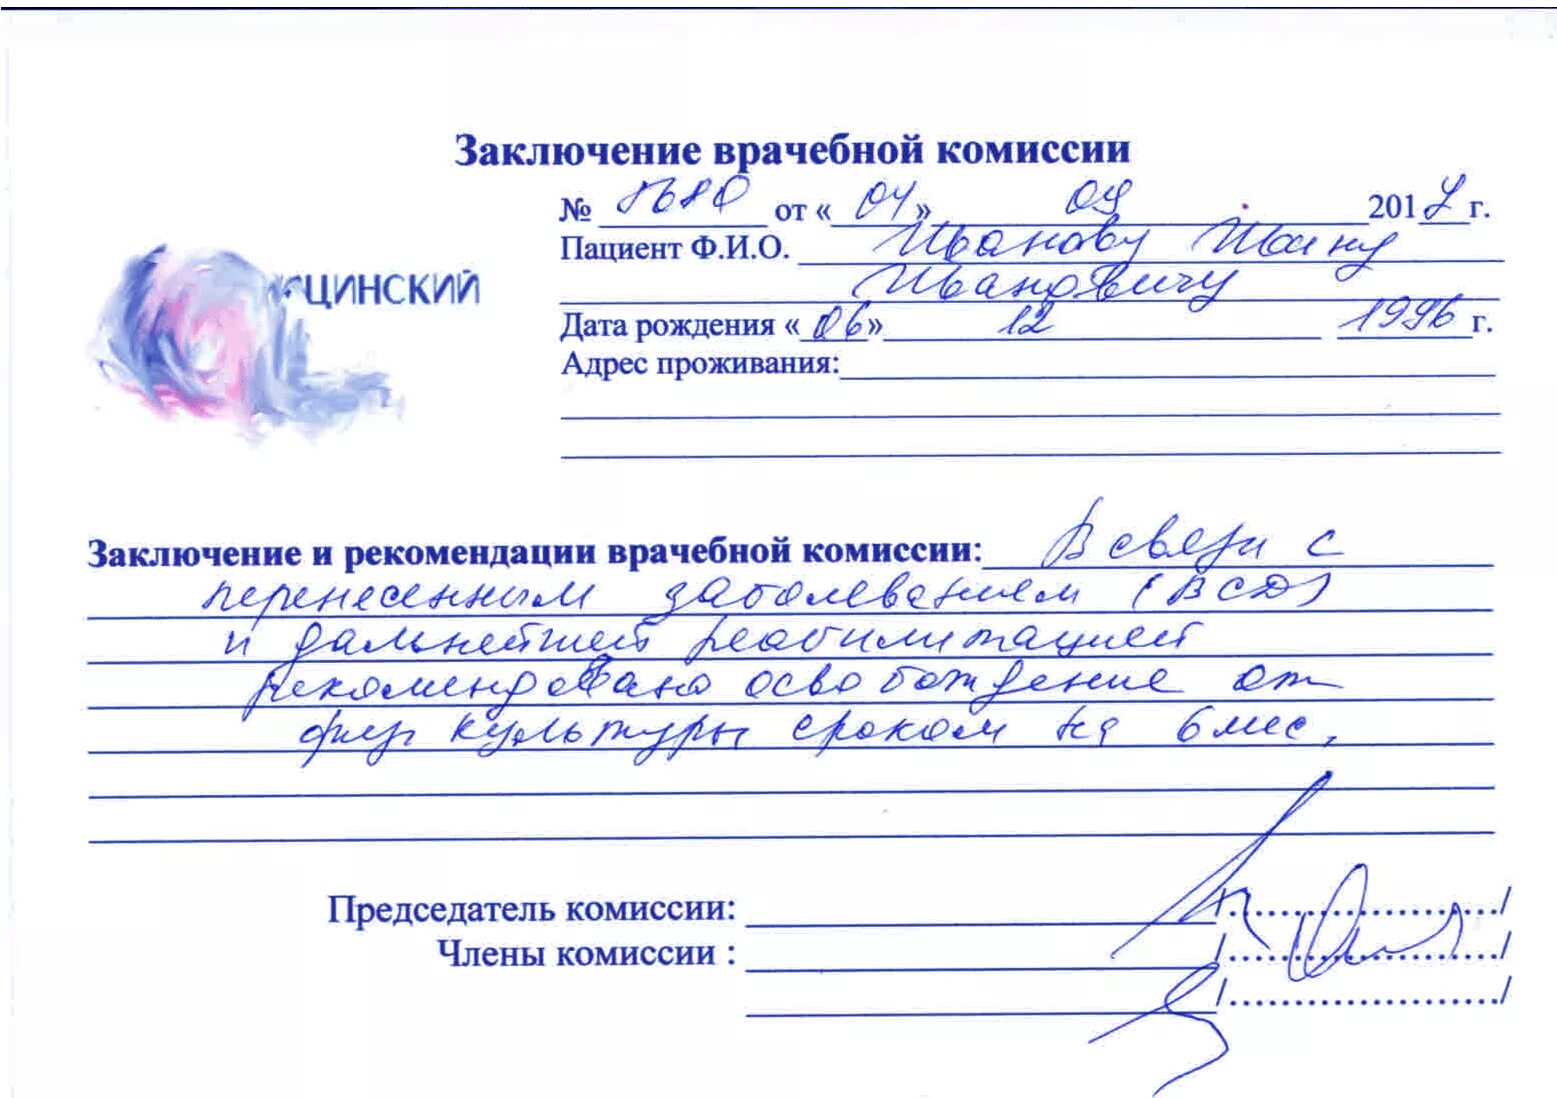 Заключение врачебной комиссии
№ 8680 от «04» 09 2017 г.
Пациент Ф.И.О. Иванову Ивану
Ивановичу
ЦИНСКИЙ
Дата рождения «06» 12 1996 г.
Адрес проживания:
Заключение и рекомендации врачебной комиссии: В связи с
перенесенным заболеванием (ВСД)
и дальнейшей реабилитацией
рекомендовано освобождение от
физ культуры сроком на 6 мес.
Председатель комиссии:
Члены комиссии :